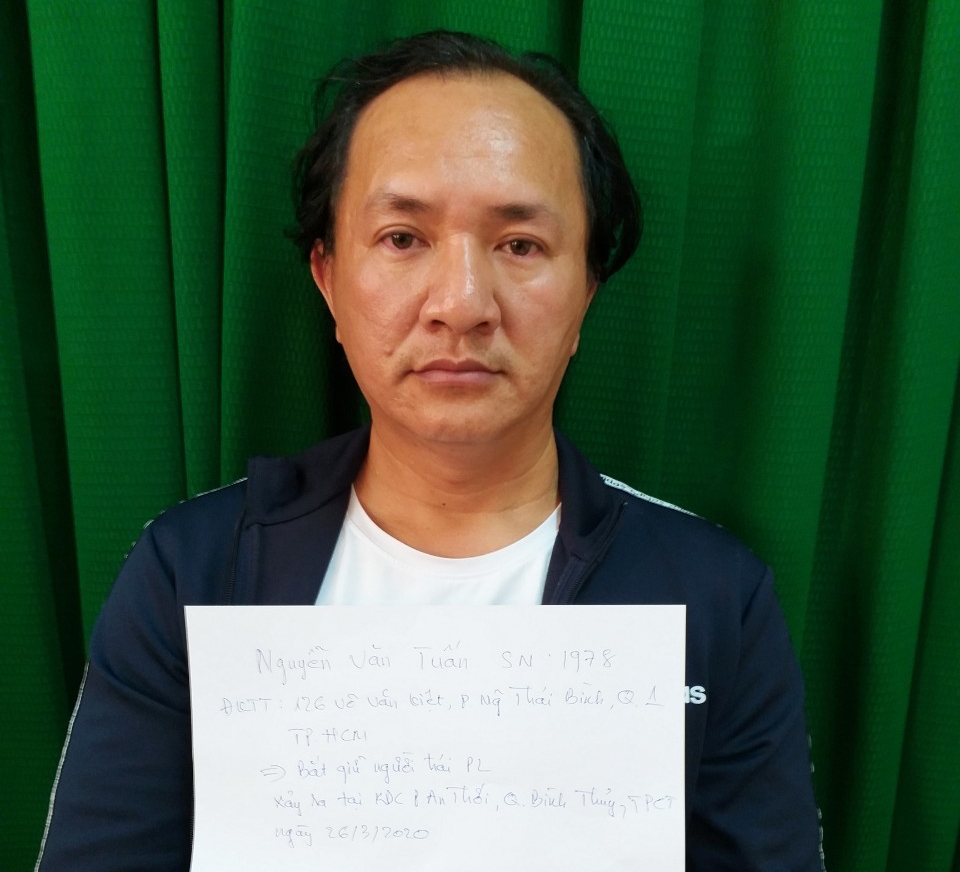 Nguyễn Văn Tuấn SN: 1978
ĐKTT: 126 Võ Văn Kiệt, P Ng Thái Bình, Q. 1
TP. HCM
=> Bắt giữ người trái PL
xảy ra tại KDC P. An Thới, Q. Bình Thủy, TPCT
ngày 26/3/2020